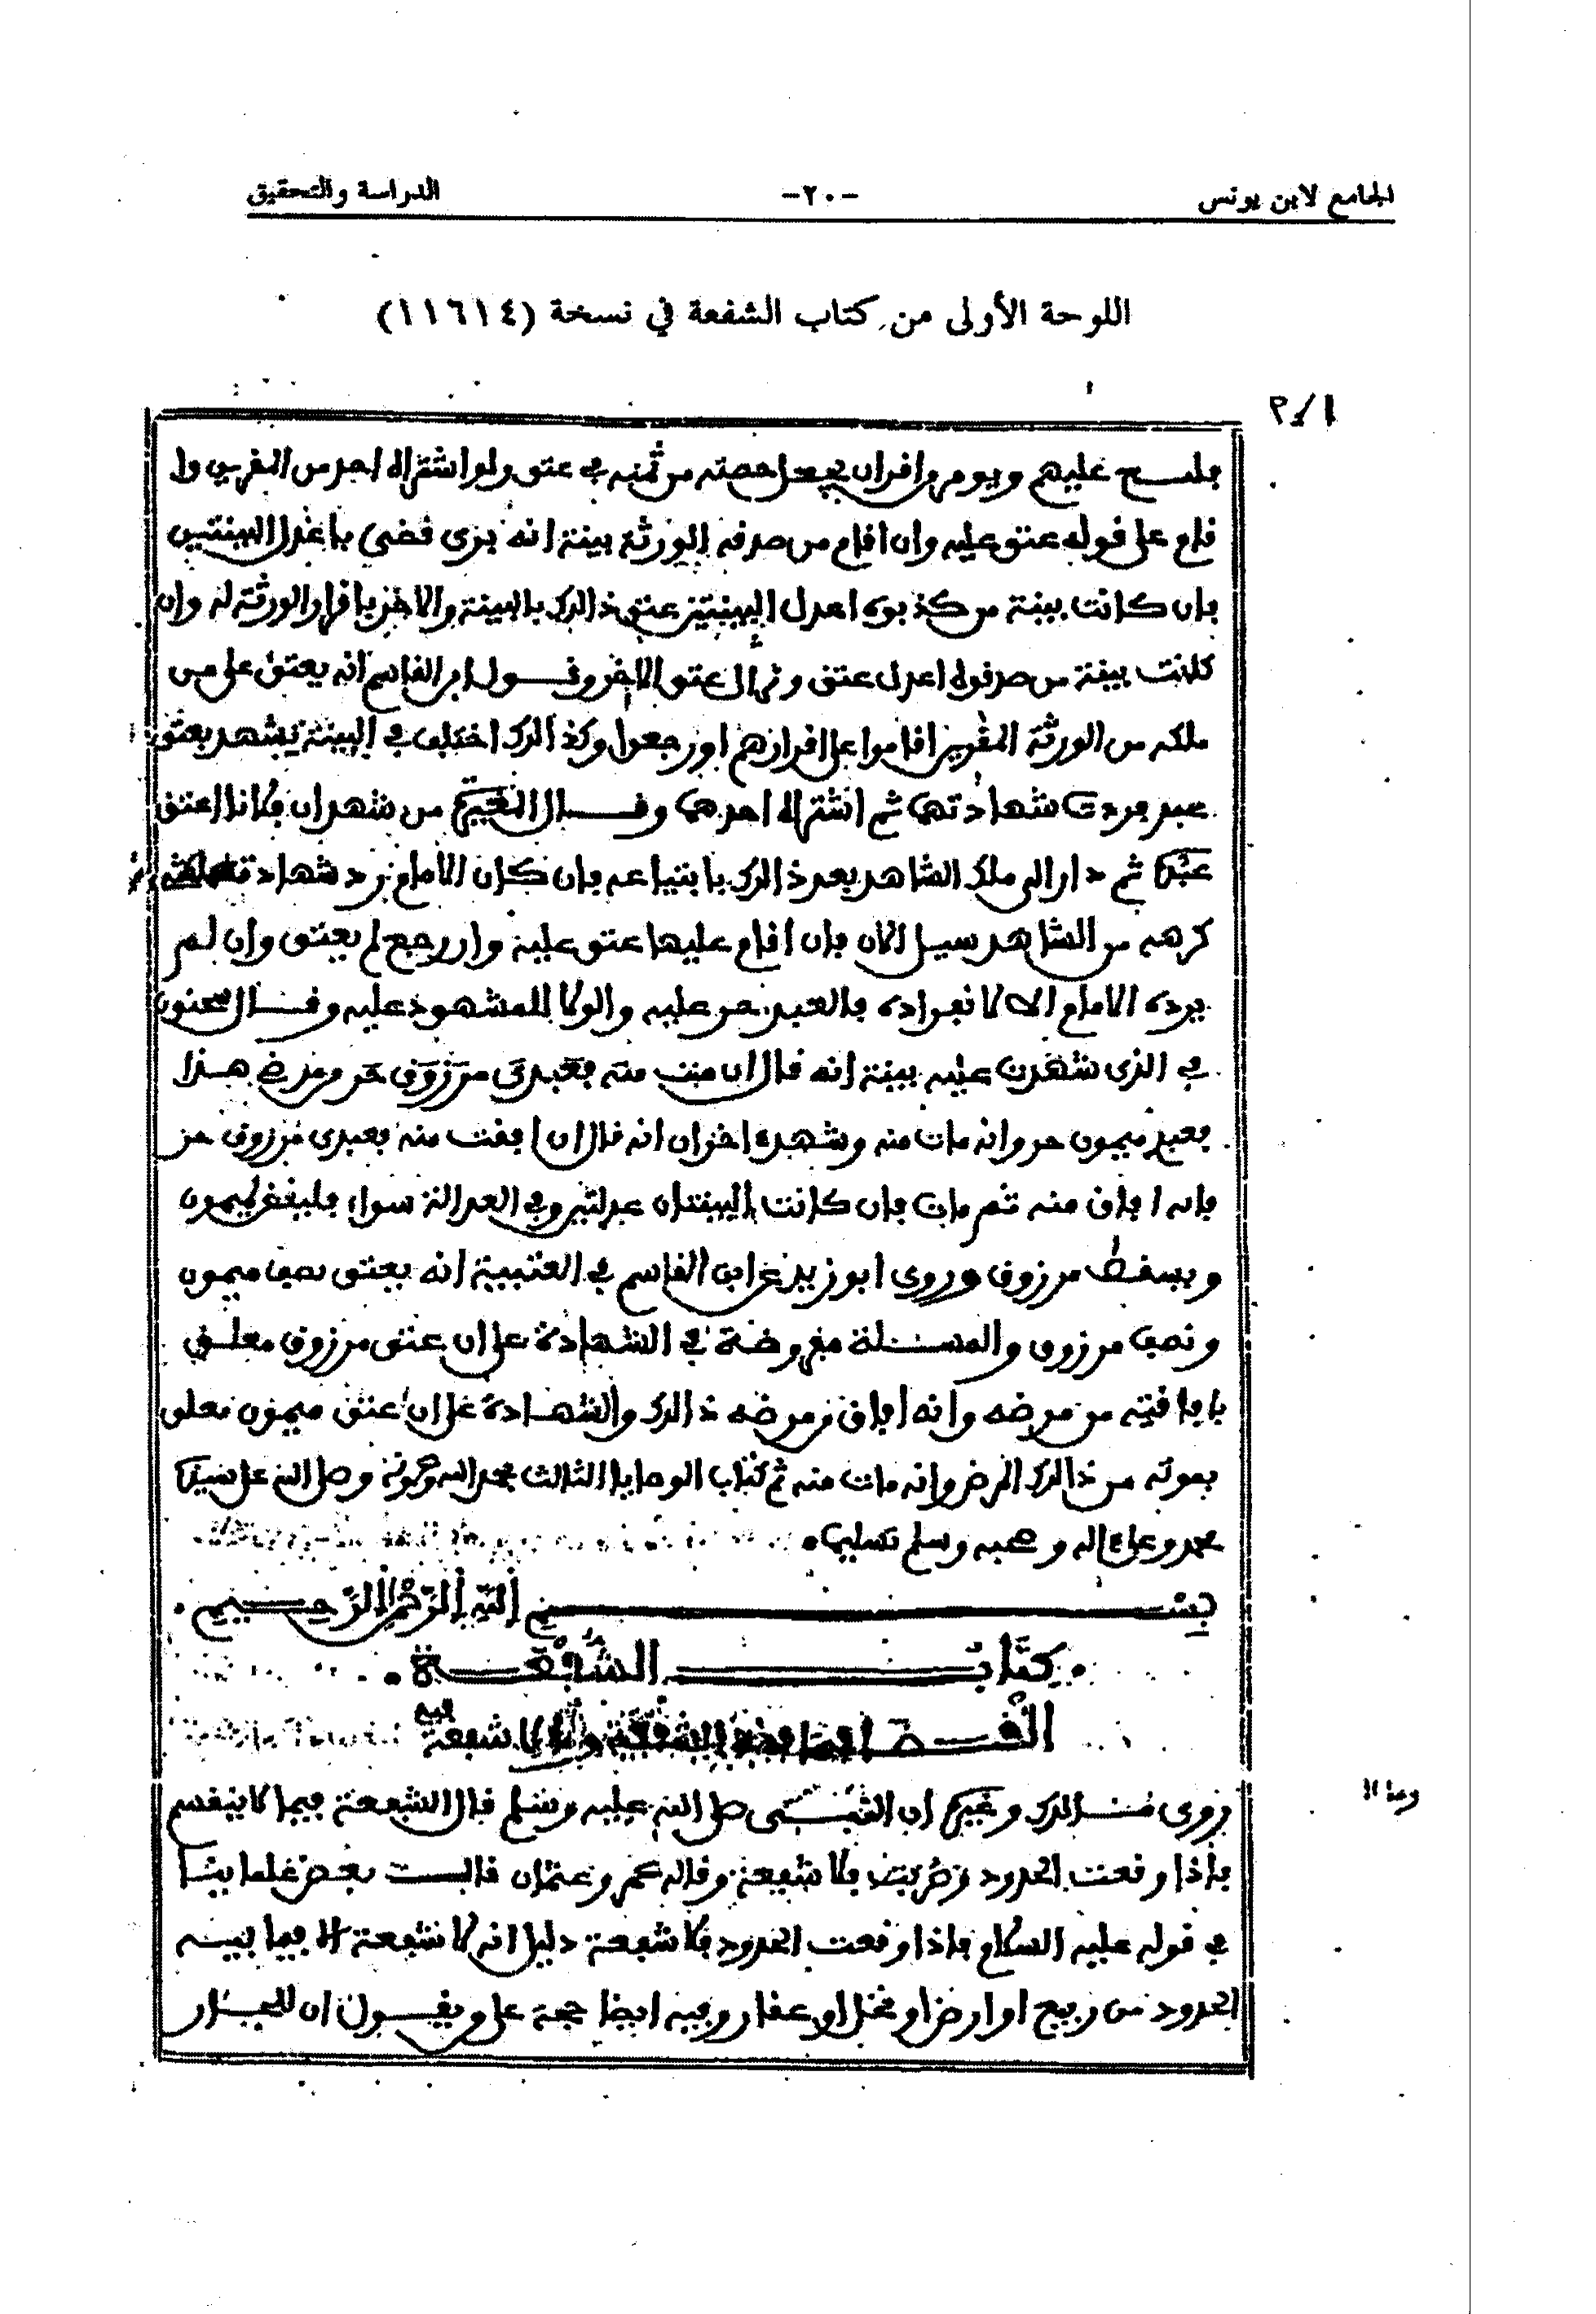 الجامع لابن يونس -٢٠- الدراسة والتحقيق
اللوحة الأولى من كتاب الشفعة في نسخة (١١٦١٤)
٢/١
عليهم ويومر وافران يجعل حصته من ثمنه في عتق ولو اشتراه احد من المقرين ول
قام على قوله عتق عليه وان اقام من صدقه الورثة بينة انه برى قضي باعدل البينتين
فان كانت بينة من كذبوه اعدل البينتين عتق ذالك بالبينة والاخر باقرار الورثة له وان
كانت بينة من صدقوه اعدل عتق عتق الاخر وقول ابن القاسم انه يعتق على من
ملكه من الورثة المقرين اقاموا على اقرارهم او رجعوا وكذالك اختلف في البينة تشهد بعتق
عبد فردت شهادتهما ثم اشتراه احدهما وقال من شهد ان فلانا اعتق
عبدا ثم دار الى ملك الشاهد بعد ذالك بابتياعه فان كان الامام رد شهادته
كرهه من الشاهد سيل الان فان اقام عليها عتق عليه وان رجع لم يعتق وان لم
يرده الامام الا لانفراده فالعبد حر عليه والولا للمشهود عليه وقال سحنون
في الذي شهدت عليه بينة انه قال ان مت منه فعبدي مرزوق حر ومرض هذا
فعبدي ميمون حر وانه مات منه وشهد اخران انه قال ان افقت منه فعبدي مرزوق حر
فانه افاق منه ثم مات فان كانت البينتان عدلتين وفي العدالة سواء لميمون
ويسقط مرزوق وروى ابو زيد عن ابن القاسم في العتبية انه يعتق نصف ميمون
ونصف مرزوق والمسئلة مفروضة في الشهادة على ان عتق مرزوق معلق
بافاقته من مرضه وانه افاق من مرضه ذالك والشهادة على ان عتق ميمون معلق
بموته من ذالك المرض وانه مات منه تم كتاب الوصايا الثالث بحمد الله وعونه وصلى الله على سيدنا
محمد وعلى اله وصحبه وسلم تسليما
بسم الله الرحمن الرحيم
كتاب الشفعة
فيما فيه الشفعة وما لا شفعة فيه
وما لا
روى مالك وغيره ان النبي صلى الله عليه وسلم قال الشفعة فيما لا ينقسم
فاذا وقعت الحدود فلا شفعة وقاله عمر وعثمان قال بعض علمائنا
في قوله عليه السلام فاذا وقعت الحدود فلا شفعة دليل انه لا شفعة الا فيما بينه
الحدود من ربع او ارض او نخل او عقار وفيه ايضا حجة على ويقول ان للجار